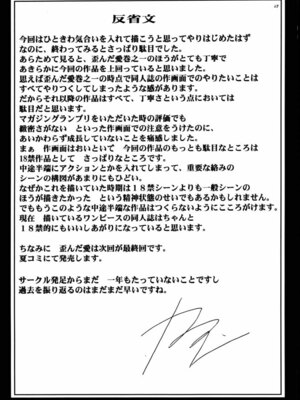 反省文
今回はひときわ気合いを入れて描こうと思ってやりはじめたはず
なのに、終わってみるとさっぱり駄目でした。
あらためて見ると、歪んだ愛巻之一のほうがとても丁寧で
あきらかに今回の作品を上回っていると思います。
思えば歪んだ愛巻之一の時点で同人誌の作画面でのやりたいことは
すべてやりつくしてしまったような感があります。
だからそれ以降の作品はすべて、丁寧さという点においては
駄目だと思います。
マガジングランプリをいただいた時の評価でも
緻密さがない といった作画面での注意をうけたのに、
あいかわらず成長していないことを痛感しました。
まぁ 作画面はおいといて 今回の作品のもっとも駄目なところは
18禁作品として さっぱりなところです。
中途半端にアクションとかを入れてしまって、重要な絡みの
シーンの構図があまりにもひどい。
なぜかこれを描いていた時期は18禁シーンよりも一般シーンの
ほうが描きたかった という精神状態のせいでもあるかもしれません。
でももうこのような中途半端な作品はつくらないようにこころがけます。
現在 描いているワンピースの同人誌はちゃんと
18禁的にもいいしあがりになっていると思います。
ちなみに 歪んだ愛は次回が最終回です。
夏コミにて発売します。
サークル発足からまだ 一年もたっていないことですし
過去を振り返るのはまだまだ早いですね。